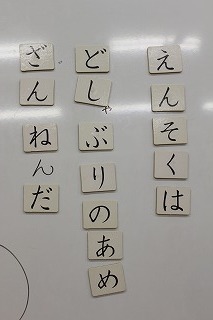 えんそくは
どしゃぶりのあめ
ざんねんだ